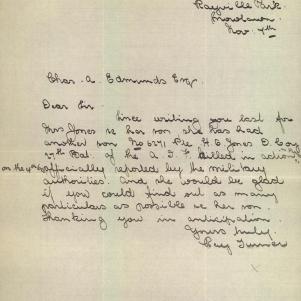 Rayville Park
Nov. 7th
Chas. A. Edmunds Esq.
Dear Sir
Since writing you last for
Mrs Jones re her son she has had
another son No 6291 Pte H. E. Jones D. Coy
27th Bat. of the A. I. F. killed in action
on the officially reported by the military
authorities. And she would be glad
if you could find out as many
particulars as possible re her son.
Thanking you in anticipation.
Yours truly
Turner